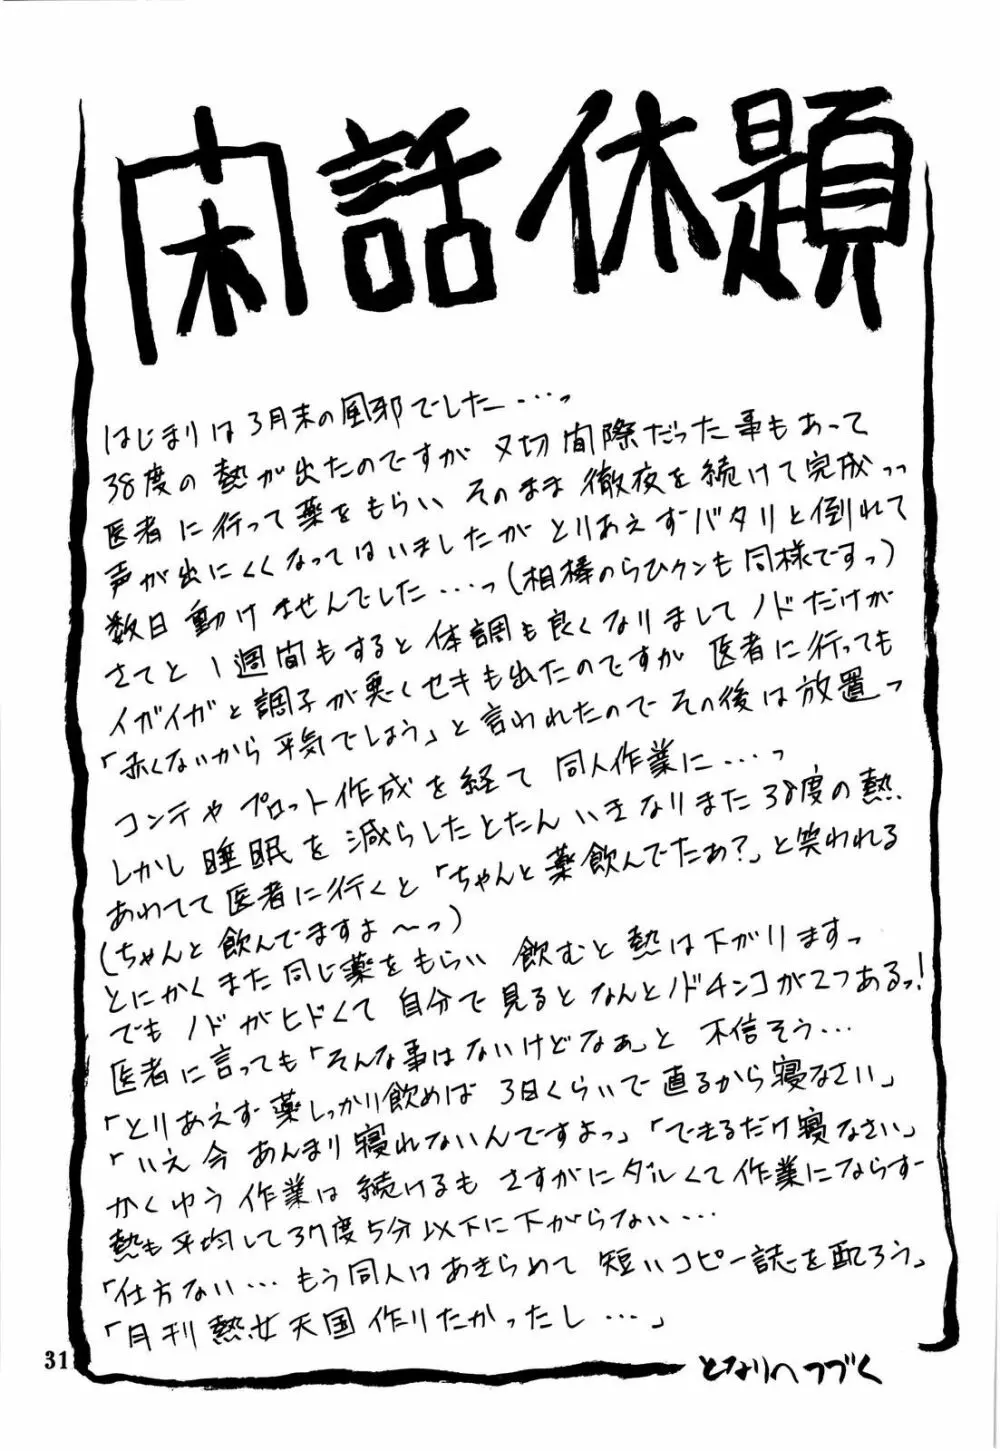 閑話休題
はじまりは3月末の風邪でした…っ
38度の熱が出たのですが〆切間際だった事もあって
医者に行って薬をもらい そのまま徹夜を続けて完成っっ
声が出にくくなってはいましたが とりあえずバタリと倒れて
数日動けませんでした…っ(相棒のらひクンも同様ですっ)
さてと 1週間もすると体調も良くなりまして ノドだけが
イガイガと調子が悪くセキも出たのですが 医者に行っても
「赤くないから平気でしょう」と言われたので その後は放置っ
コンテやプロット作成を経て 同人作業に…っ
しかし睡眠を減らしたとたん いきなりまた38度の熱
あわてて医者に行くと「ちゃんと薬飲んでたぁ?」と笑われる
(ちゃんと飲んでますよ〜っ)
とにかくまた同じ薬をもらい 飲むと熱は下がりますっ
でもノドがヒドくて 自分で見るとなんとノドチンコが2つあるっ!
医者に言っても「そんな事はないけどなぁ」と 不信そう…
「とりあえず薬しっかり飲めば 3日くらいで直るから寝なさい」
「いえ今あんまり寝れないんですよっ」「できるだけ寝なさい」
かくゆう作業は続けるも さすがにダルくて作業にならず
熱も平均して37度5分以下に下がらない…
「仕方ない…もう同人はあきらめて 短いコピー誌を配ろう」
「月刊熱女天国作りたかったし…」
となりへつづく
31